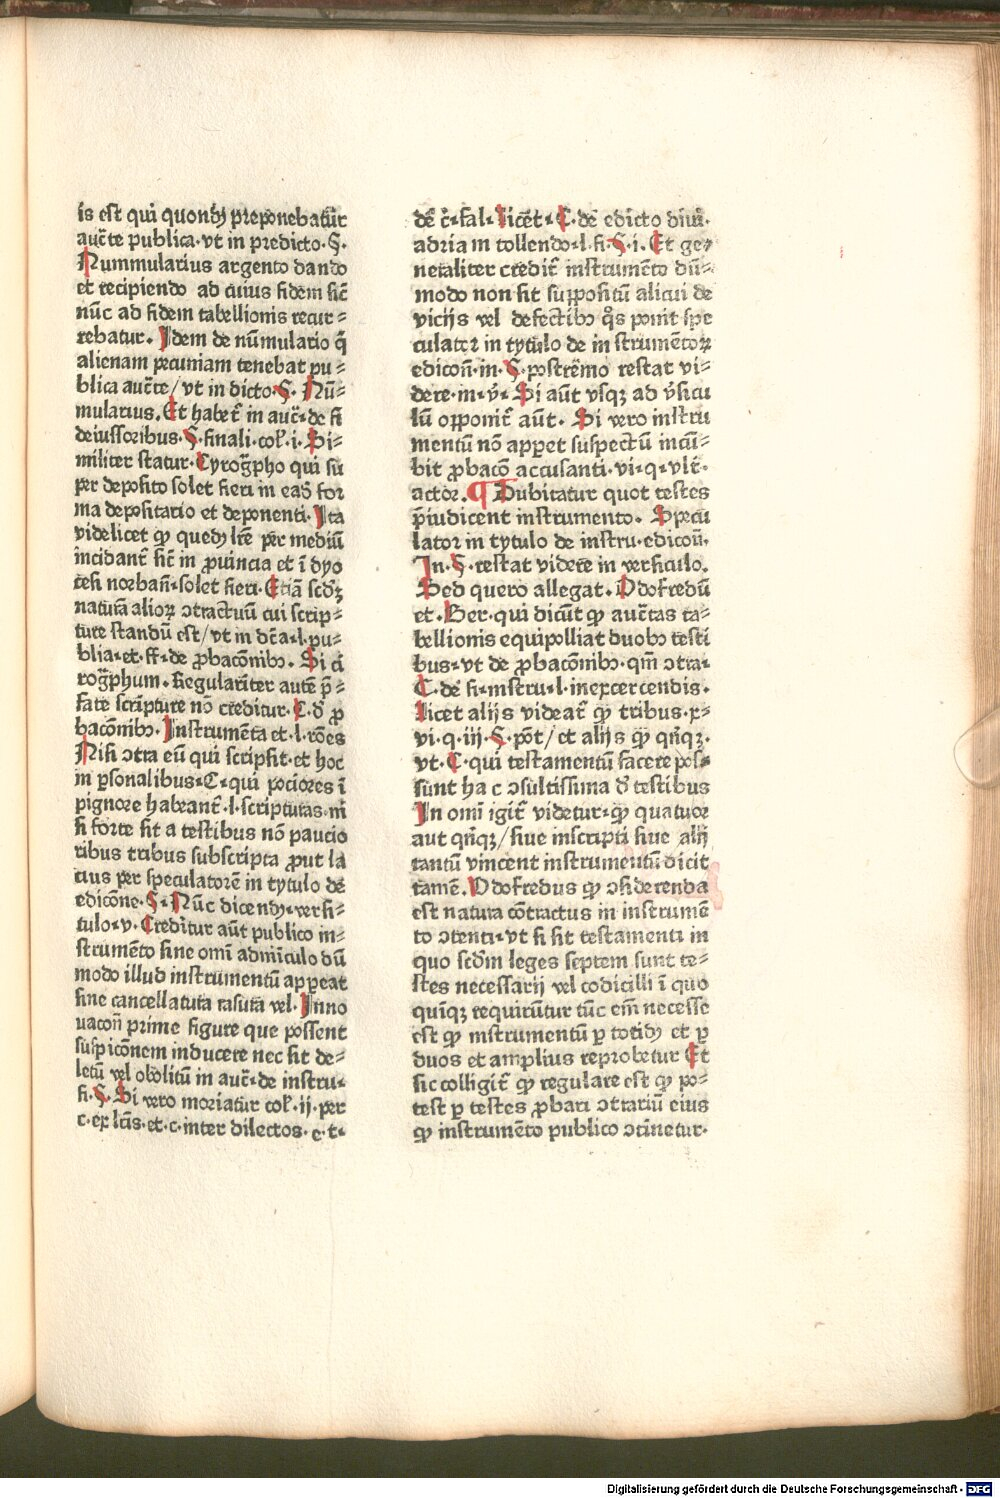 is est qui quondꝫ preponebatur
auct̄e publica·vt in predicto·§·
Nummularius argento dando
et recipiendo ad cuius fidem sic̄
nūc ad fidem tabellionis recur⸗
rebatur· Idem de nūmulario q̄
alienam pecuniam tenebat pu⸗
blica auct̄e/vt in dicto·§· Nū⸗
mularius·Et habet̄ in auc̄·de fi
deiussoribus·§·finali·col̄·i·Si⸗
militer statur·Cyrogp̄ho qui su
per deposito solet fieri in eaꝫ for
ma depositario et deponenti·Ita
videlicet ꝙ quedꝫ lr̄e per mediū
incidant̄ sic̄ in ꝓuincia et ī dyo
cesi norban̄·solet fieri·Etiā scd̄ꝫ
naturā alioꝝ ↄtractuū cui scrip⸗
ture standū est/vt in dc̄a·l·pu⸗
blia·et·ff·de ꝓbacōnibꝰ·Si ci
rogp̄hum·Regulariter autē p̄⸗
fate scripture nō creditur·C·d̄ ꝓ
bacōnibꝰ·Instrumēta et·l·rōes
Nisi ↄtra eū qui scripsit·et hoc
in ꝑsonalibus·C·qui pociores ī
pignore habeant̄·l·scripturas·ni
si forte sit a testibus nō paucio
ribus tribus subscripta ꝓut la
cius per speculatorē in tytulo de
edicōne·§·Nūc dicendꝫ·versi⸗
tulo·v·Creditur aūt publico in⸗
strumēto sine omī admīculo dū
modo illud instrumentū appeat
sine cancellatura rasura vel·Inno
uacon̄ prime figure que possent
suspicōnem inducere nec sit de⸗
letū vel obolitū in auc̄·de instru·
fi·§·Si vero moriatur col̄·ij·per
c·ex lr̄is·et·c·inter dilectos·e·t·
de c̄·fal·licet·C·de edicto diui·
adria in tollendo·l·fi·§·i·Et ge⸗
neraliter credit̄ instrumēto dū⸗
modo non sit suppositū alicui de
vicijs vel defectibꝰ q̄s ponit spe
culator in tytulo de in strumētoꝝ
edicon̄·in·§·postremo restat vi⸗
dere·in·v̄·Si aūt vsqꝫ ad v̄sicu
lū opponit̄ aūt· Si vero instru
mentū nō appet suspectū incū⸗
bit ꝓbacō accusanti·vi·q·vlt̄·
actor·¶ Dubitatur quot testes
p̄iudicent instrumento· Specu
lator in tytulo de instru·edicon̄·
In·§·restat videre in versiculo·
Sed quero allegat·Odofredū
et·Ber·qui dicūt ꝙ auct̄as ta⸗
bellionis equipolliat duobꝰ testi
bus·vt de ꝓbacōnibꝰ·qm̄ ↄtra·
C·de fi·instru·l·in exercendis·
licet alijs videat̄ ꝙ tribus·x⸗
vi·q·iij·§·pōt/et alijs ꝙ qn̄qꝫ·
vt·C·qui testamentū facere pos⸗
sunt ha c ↄsultissima d̄ testibus
In omī igit̄ videtur·ꝙ quatuor
aut qn̄qꝫ/siue inscripti siue alij
tantū vincent instrumentū dicit
tamē·Odofredus ꝙ ↄsiderenda
est natura cōtractus in instrumē
to ↄtenti·vt si sit testamenti in
quo scd̄m leges septem sunt te⸗
stes necessarij vel codicilli ī quo
quīqꝫ requirūtur tūc em̄ necesse
est ꝙ instrumentū ꝑ totidꝫ et ꝑ
duos et amplius reprobetur Et
sic colligit̄ ꝙ regulare est ꝙ po⸗
test ꝑ testes ꝓbari ↄtrariū eius
ꝙ instrumēto publico ↄtinetur·
Digitalisierung gefördert durch die Deutsche Forschungsgemeinschaft · DFG